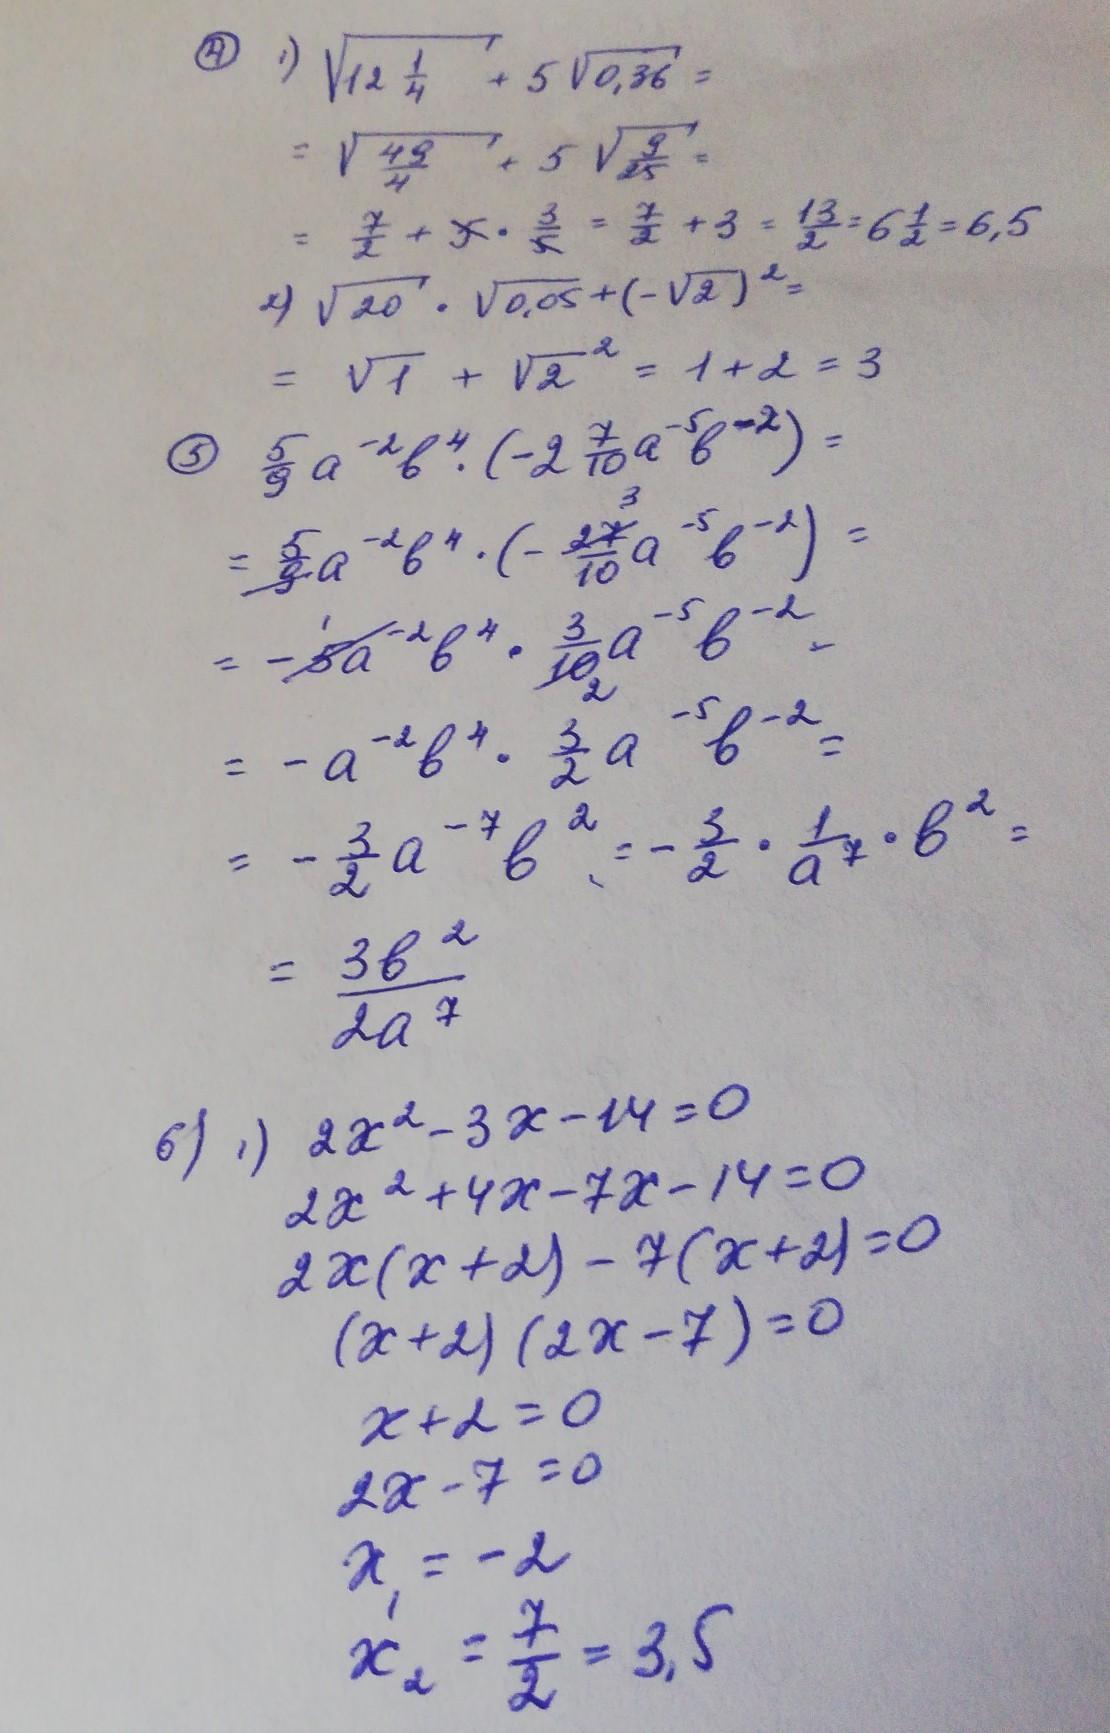 ④ 1) √(12 1/4) + 5√(0,36) =
= √(49/4) + 5√(9/25) =
= 7/2 + 5 · 3/5 = 7/2 + 3 = 13/2 = 6 1/2 = 6,5
2) √20 · √0,05 + (-√2)² =
= √1 + √2² = 1 + 2 = 3
⑤ 5/9 a⁻²b⁴ · (-2 7/10 a⁻⁵b⁻²) =
= 5/9 a⁻²b⁴ · (- 27/10 a⁻⁵b⁻²) = 3
= - 5a⁻²b⁴ · 3/10 a⁻⁵b⁻² - 1 2
= - a⁻²b⁴ · 3/2 a⁻⁵b⁻² =
= - 3/2 a⁻⁷b² = - 3/2 · 1/a⁷ · b² =
= 3b²/2a⁷
6) 1) 2x² - 3x - 14 = 0
2x² + 4x - 7x - 14 = 0
2x(x+2) - 7(x+2) = 0
(x+2)(2x-7) = 0
x + 2 = 0
2x - 7 = 0
x₁ = -2
x₂ = 7/2 = 3,5